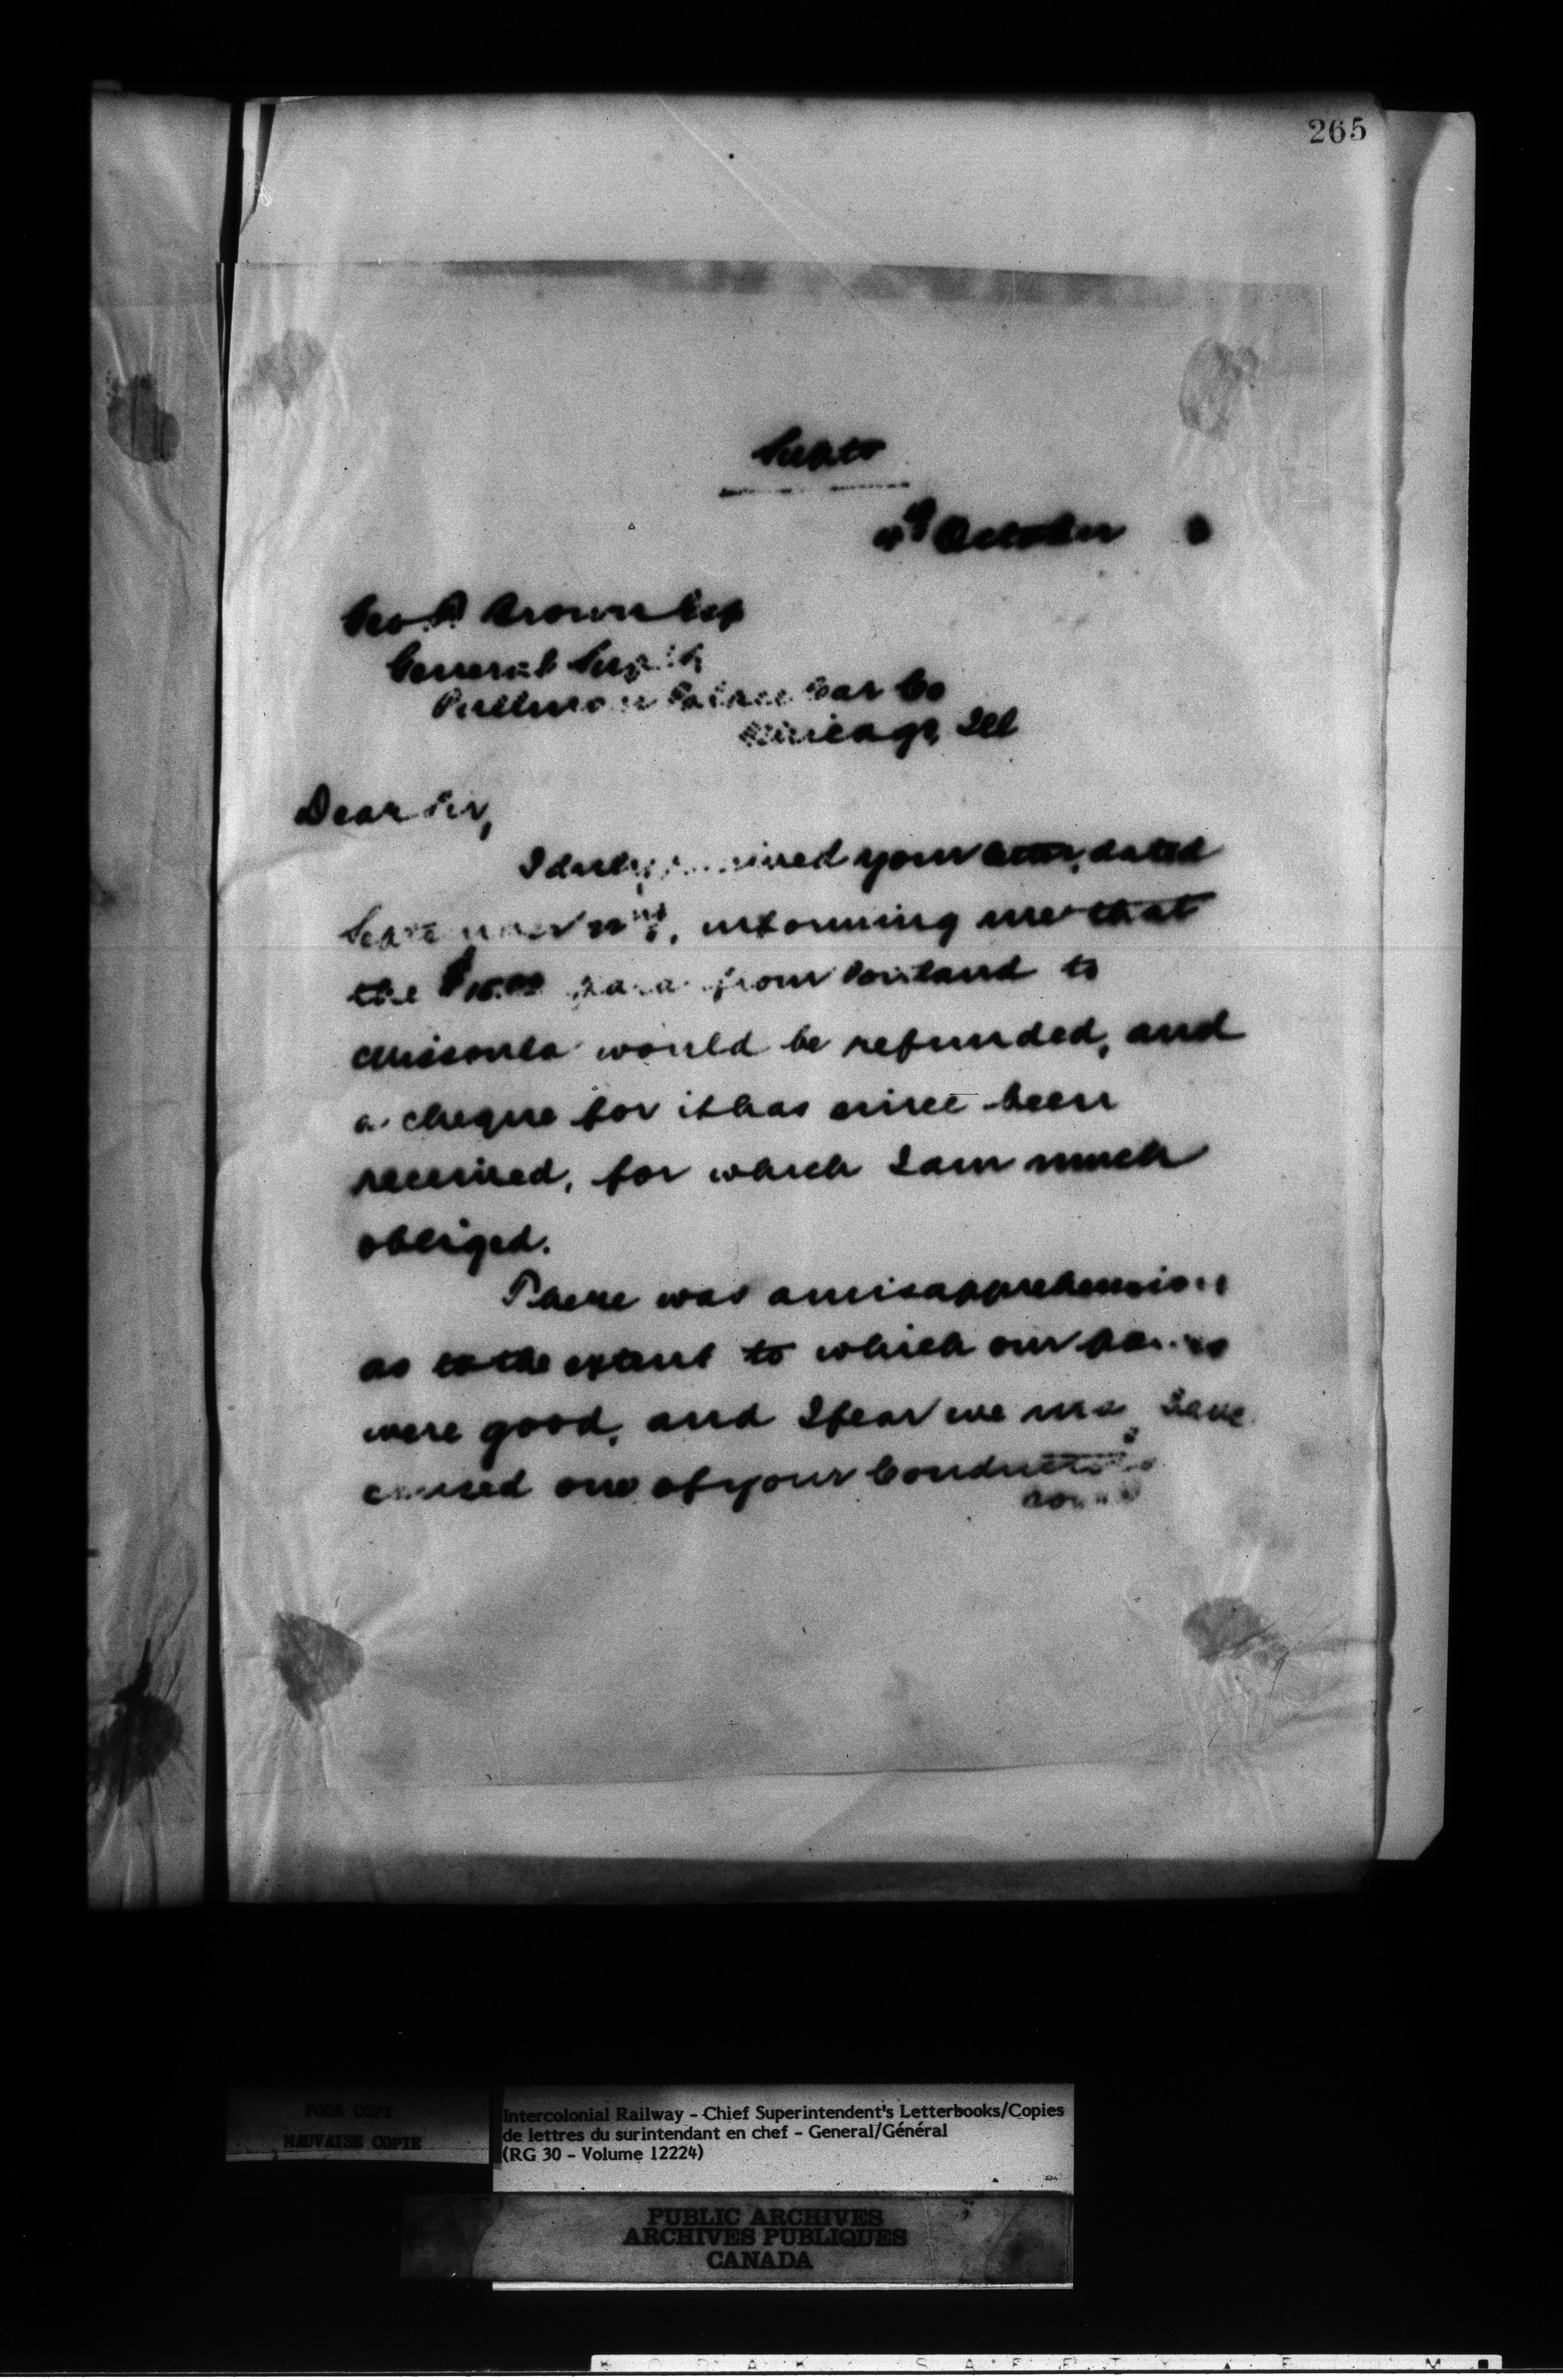 265
Supts
October 3
Geo. A Brown Esq
General Supt
Pullman Palace Car Co
Chicago, Ill
Dear Sir,
I duly received your letter, dated
September 22nd, informing me that
the $15.00 paid from Portland to
Missoula would be refunded, and
a cheque for it has since been
received, for which I am much
obliged.
There was a misapprehension
as to the extent to which our passes
were good, and I fear we may have
caused one of your Conductors
some
POOR COPY
MAUVAISE COPIE
Intercolonial Railway - Chief Superintendent's Letterbooks/Copies
de lettres du surintendant en chef - General/Général
(RG 30 - Volume 12224)
PUBLIC ARCHIVES
ARCHIVES PUBLIQUES
CANADA
KODAK SAFETY FILM